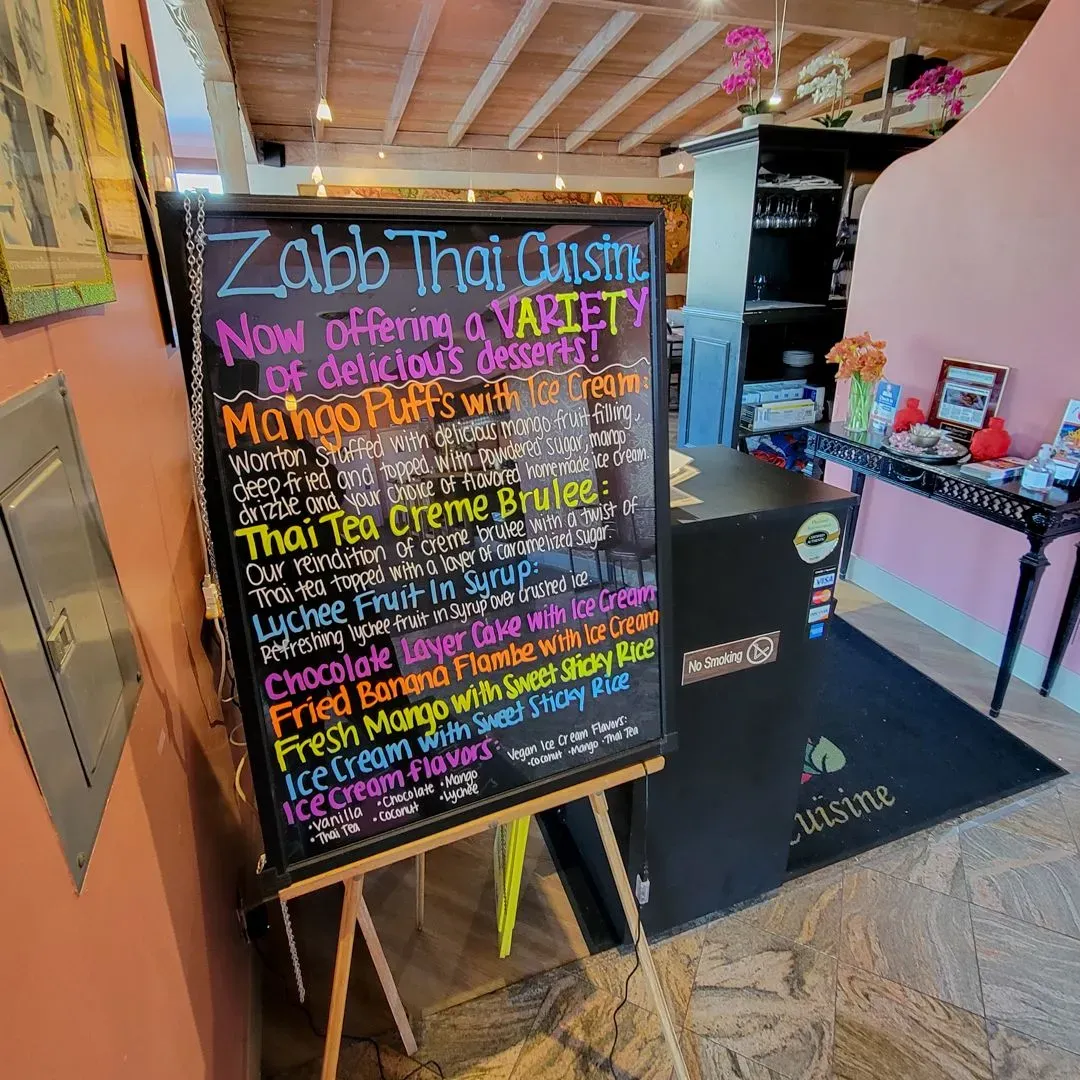 Zabb Thai Cuisine
Now offering a VARIETY
of delicious desserts!
Mango Puffs with Ice Cream:
Wonton stuffed with delicious mango fruit filling,
deep fried and topped with powdered sugar, mango
drizzle and your choice of flavored homemade ice cream.
Thai Tea Creme Brulee:
Our reindition of creme brulee with a twist of
Thai tea topped with a layer of caramelized sugar.
Lychee Fruit In Syrup:
Refreshing lychee fruit in syrup over crushed ice.
Chocolate Layer Cake with Ice Cream
Fried Banana Flambe with Ice Cream
Fresh Mango with Sweet Sticky Rice
Ice Cream with Sweet Sticky Rice
Ice Cream flavors:
•Vanilla •Chocolate •Mango
•Thai Tea •Coconut •Lychee
Vegan Ice Cream Flavors:
•Coconut •Mango •Thai Tea
No Smoking
VISA
uisine